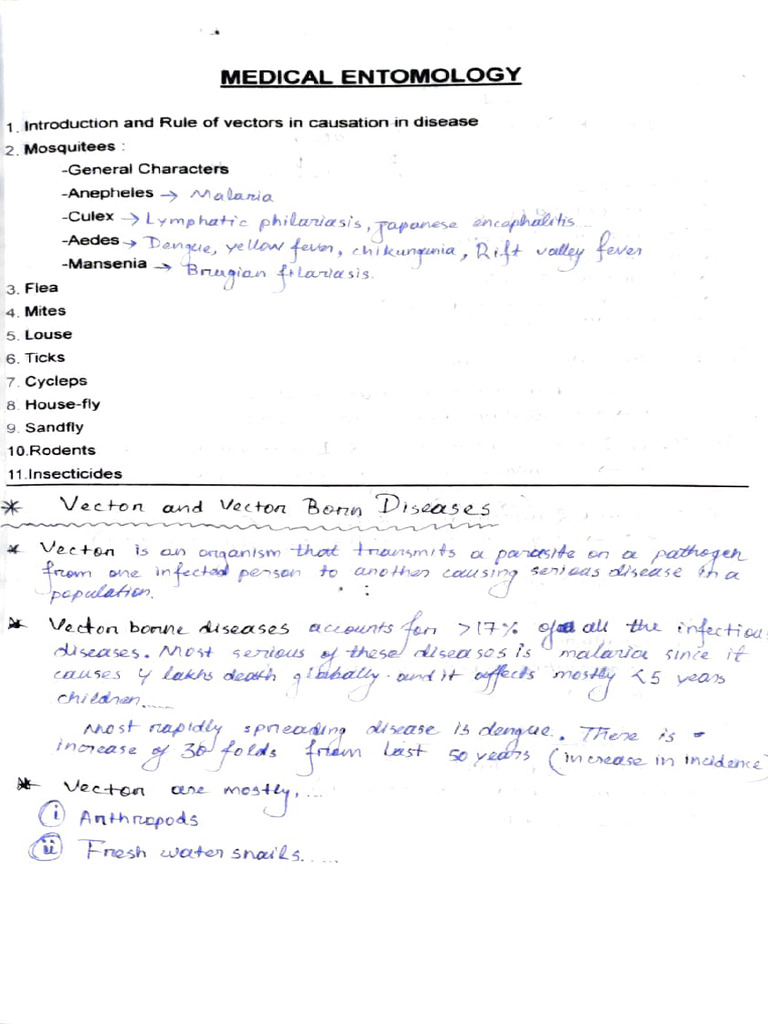 MEDICAL ENTOMOLOGY
1. Introduction and Rule of vectors in causation in disease
2. Mosquitees :
-General Characters
-Anepheles → Malaria
-Culex → Lymphatic philariasis, Japanese encephalitis...
-Aedes → Dengue, yellow fever, chikungunia, Rift valley fever
-Mansenia → Brugian filariasis.
3. Flea
4. Mites
5. Louse
6. Ticks
7. Cycleps
8. House-fly
9. Sandfly
10.Rodents
11.Insecticides
* Vector and Vector Born Diseases
* Vector is an organism that transmits a parasite or a pathogen
from one infected person to another causing serious disease in a
population.
* Vector borne diseases accounts for >17% of all the infectiou
diseases. Most serious of these diseases is malaria since it
causes 4 lakhs death globally and it affects mostly <5 years
children.....
Most rapidly spreading disease is dengue. There is
increase of 30 folds from last 50 years (increase in incidence)
* Vector are mostly,...
(i) Arthropods
(ii) Fresh water snails.....